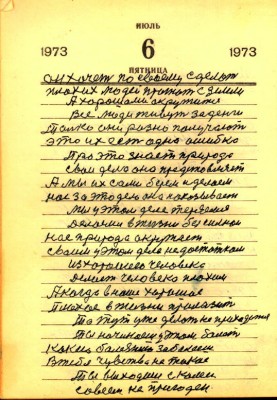 ИЮЛЬ
1973 6 1973
ПЯТНИЦА
он хочет по своему сделат
плохих людей прогнат с земли
А хорошами окружится
Все люди живут за денги
Толко они разно получают
это их ест одна ошибка
Про это знает природа
Свои дела она представляет
А мы их сами берем и делаем
нас за это дело она наказывает
Мы у этом деле терпения
Делаем в жизни
нас природа окружает
Своим у этом деле недостатком
из хорошего человека
Делает человека плохим
А когда в наше хорошае
Плохое в жизни прилазит
То тут уже делат не приходится
Ты начинаеш у этом болет
Какиш болезнию заболел
В тебе чувства не такае
Ты выходиш с колеи
Совсем не пригоден